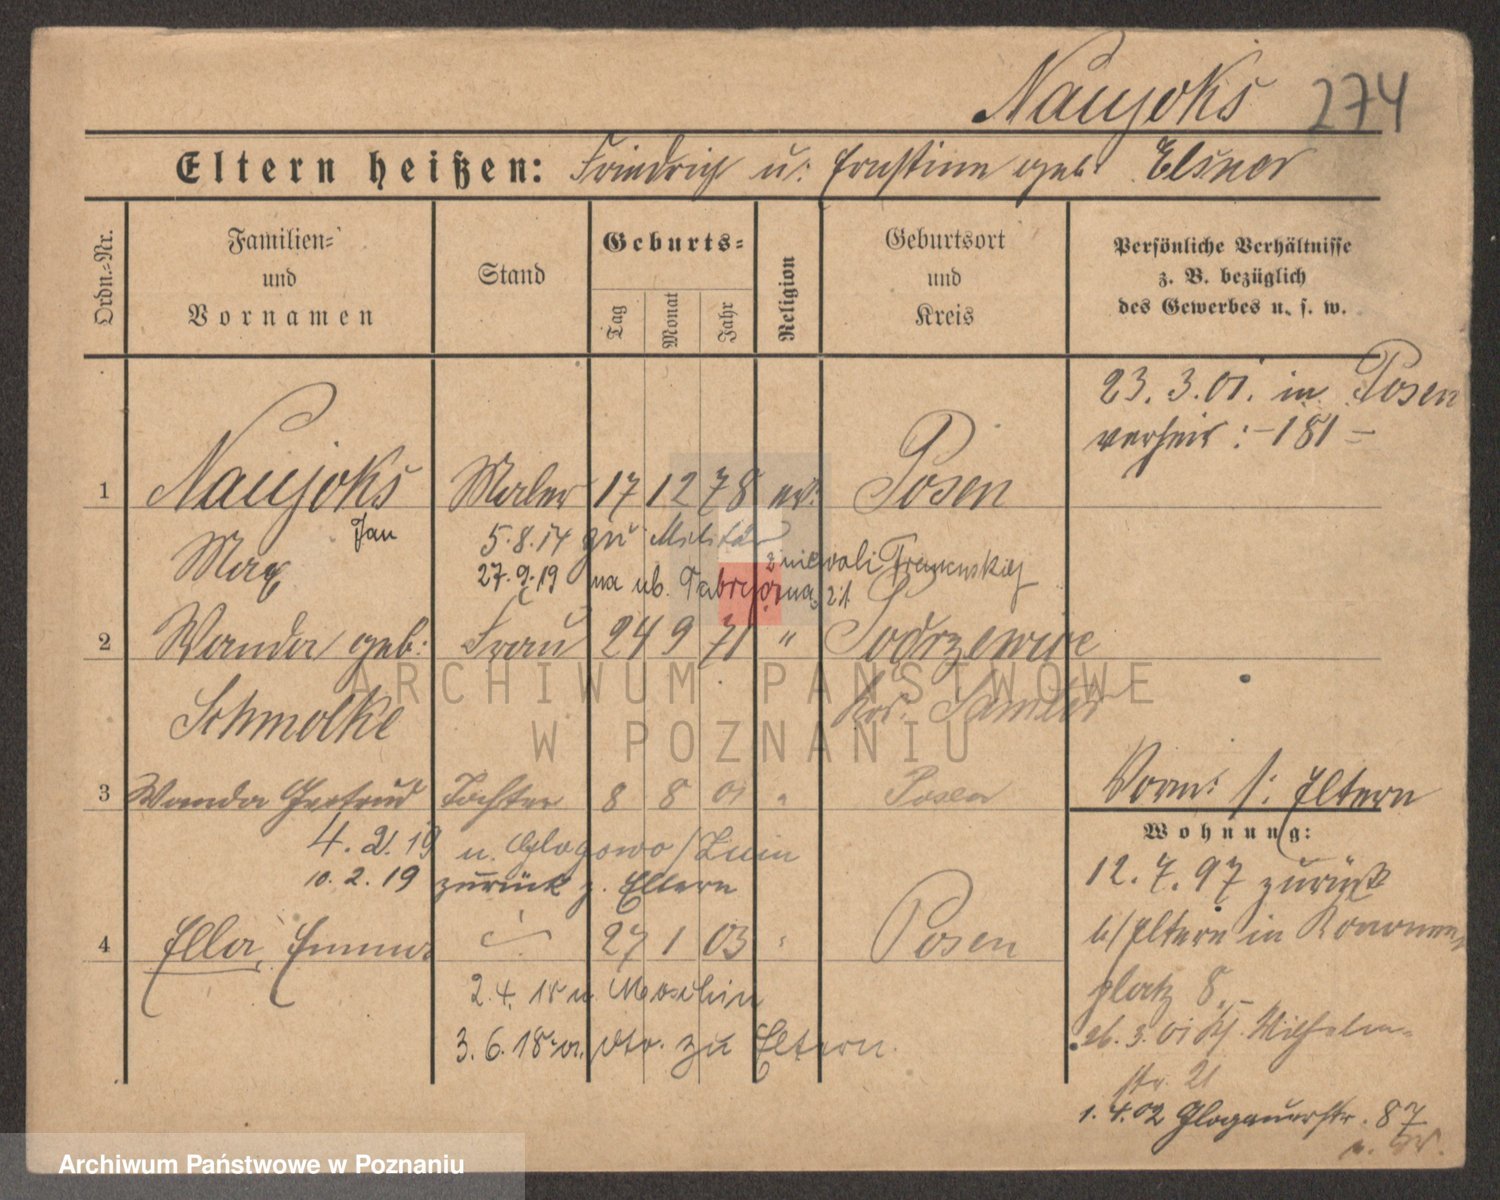 Naujoks 274
Eltern heißen: Friedrich u. Ernstine geb. Elsner
Ordn.=Nr.
Familien=
und
Vornamen
Stand
Geburts=
Tag
Monat
Jahr
Religion
Geburtsort
und
Kreis
Persönliche Verhältnisse
z. B. bezüglich
des Gewerbes u. s. w.
23. 3. 01. in Posen
verheir: -181-
1 Naujoks Maler 17 12 78 ev. Posen
Jan
Max
5.8.14 zu Militär
27.9.19 na ub.
2 Wanda geb: Frau 24 9 71 " Podrzewie
Schmolke Krs. Samter
3 Wanda Gertrud Tochter 8 8 01 " Posen
4. 2. 19 n. Glogowo / Znin
10. 2. 19 zurück z. Eltern
4 Ella, Emma 27 1 03 " Posen
2. 4. 18 n. Moschin
3. 6. 18 v. dto. zu Eltern.
Vorm: s: Eltern
Wohnung:
12. 7. 97 zurück
b/Eltern in Kanonen
platz 8.
26. 3. 01 Wilhelm-
str. 21
1. 4. 02 Glogauerstr. 87
ARCHIWUM PAŃSTWOWE
W POZNANIU
Archiwum Państwowe w Poznaniu